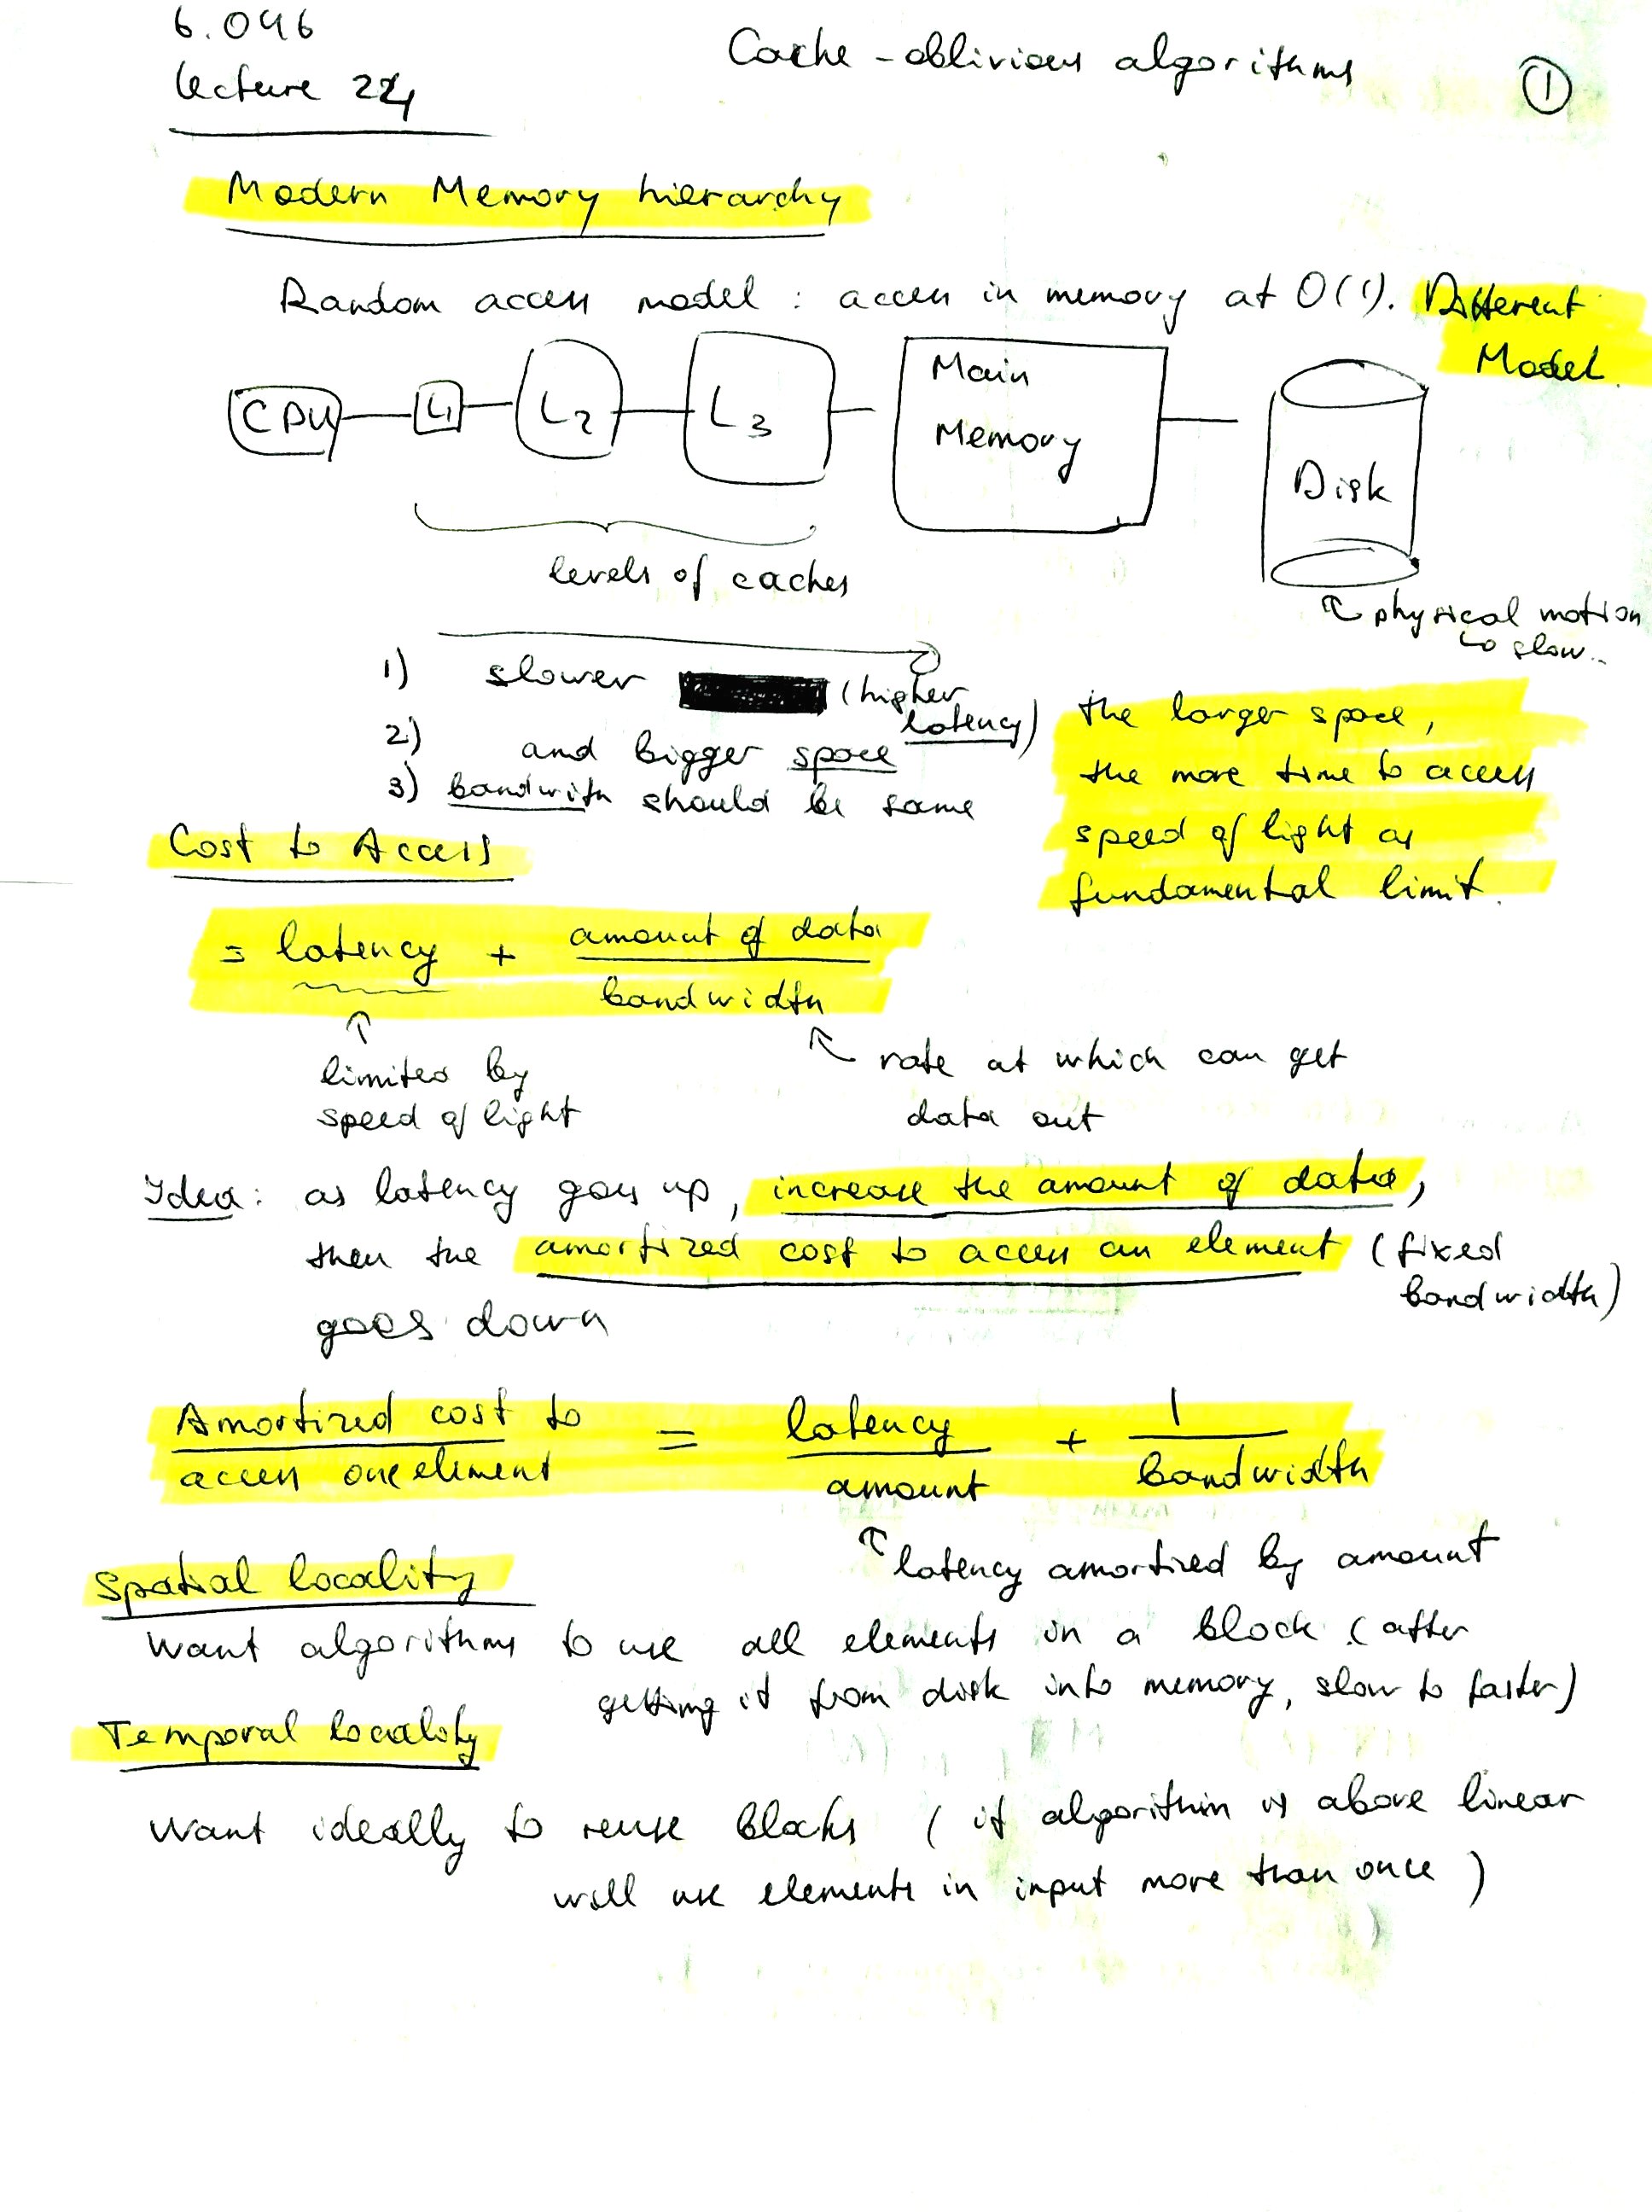 6.046
Lecture 24
Cache-oblivious algorithms
1
Modern Memory hierarchy
Random access model : access in memory at O(1). Different
Model.
CPU
L1
L2
L3
Main
Memory
Disk
levels of caches
physical motion
to slow..
1) slower (higher
latency)
2) and bigger space
3) bandwith should be same
the larger space,
the more time to access
speed of light as
fundamental limit.
Cost to Access
= latency + amount of data
bandwidth
limited by
speed of light
rate at which can get
data out
Idea: as latency goes up, increase the amount of data,
then the amortized cost to access an element (fixed
bandwidth)
goes down
Amortized cost to
access one element
= latency + 1
amount bandwidth
latency amortized by amount
Spatial locality
Want algorithms to use all elements in a block (after
getting it from disk into memory, slow to faster)
Temporal locality
Want ideally to reuse blocks (if algorithm is above linear
will use elements in input more than once)